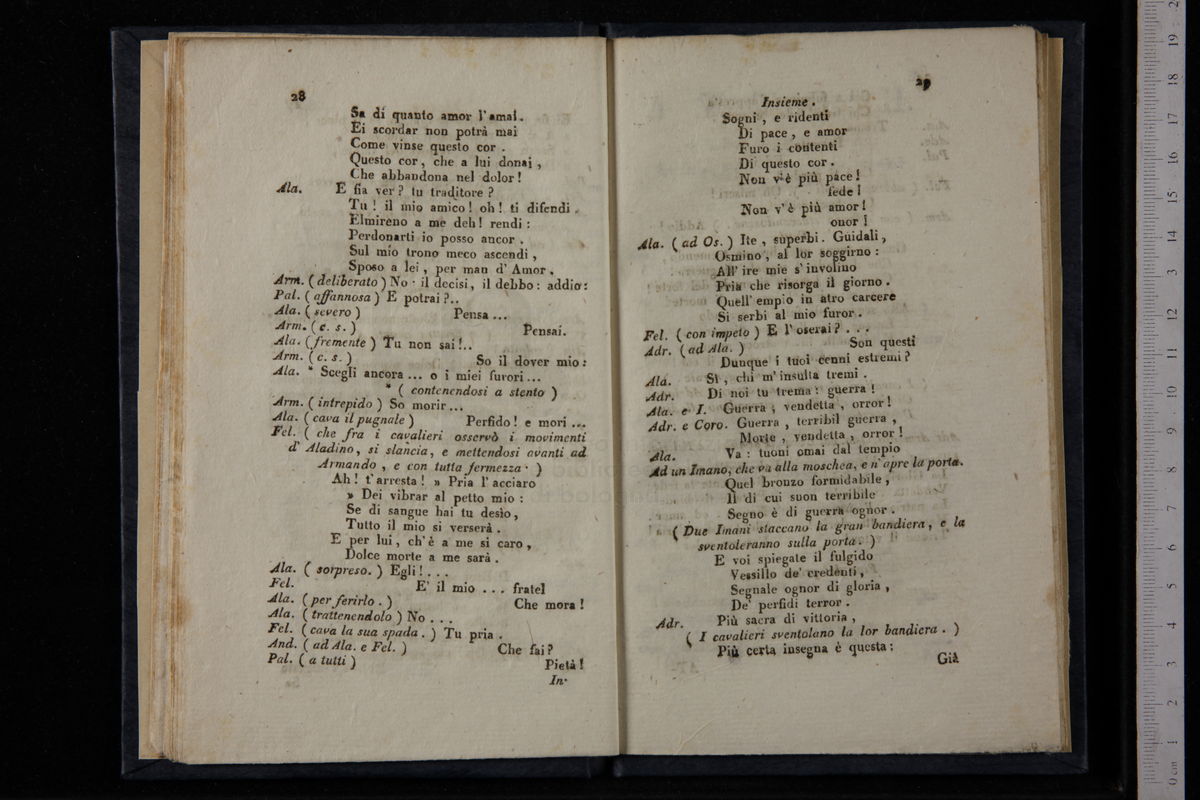 28
Sa di quanto amor l'amai.
Ei scordar non potrà mai
Come vinse questo cor .
Questo cor, che a lui donai ,
Che abbandona nel dolor !
Ala. E fia ver ? tu traditore ?
Tu ! il mio amico ! oh ! ti difendi .
Elmireno a me deh ! rendi :
Perdonarti io posso ancor .
Sul mio trono meco ascendi ,
Sposo a lei , per man d' Amor .
Arm. ( deliberato ) No · il decisi, il debbo : addio :
Pal. ( affannosa ) E potrai ?..
Ala. ( severo ) Pensa ...
Arm. ( c. s. ) Pensai.
Ala. ( fremente ) Tu non sai !..
Arm. ( c. s. ) So il dover mio :
Ala. * Scegli ancora ... o i miei furori ...
* ( contenendosi a stento )
Arm. ( intrepido ) So morir ...
Ala. ( cava il pugnale ) Perfido ! e mori ...
Fel. ( che fra i cavalieri osservò i movimenti
d' Aladino, si slancia, e mettendosi avanti ad
Armando , e con tutta fermezza · )
Ah ! t' arresta ! » Pria l' acciaro
» Dei vibrar al petto mio :
Se di sangue hai tu desìo,
Tutto il mio si verserà .
E per lui, ch' è a me si caro ,
Dolce morte a me sarà .
Ala. ( sorpreso. ) Egli ! . . .
Fel. E' il mio . . . fratel
Ala. ( per ferirlo . ) Che mora !
Ala. ( trattenendolo ) No . . .
Fel. ( cava la sua spada . ) Tu pria .
And. ( ad Ala. e Fel. ) Che fai ?
Pal. ( a tutti ) Pietà !
In-
29
Insieme .
Sogni , e ridenti
Di pace , e amor
Furo i contenti
Di questo cor .
Non v'è più pace !
fede !
Non v' è più amor !
onor !
Ala. ( ad Os. ) Ite , superbi . Guidali ,
Osmino , al lor soggirno :
All' ire mie s' involino
Pria che risorga il giorno .
Quell' empio in atro carcere
Si serbi al mio furor .
Fel. ( con impeto ) E l' oserai ? . . .
Adr. ( ad Ala. ) Son questi
Dunque i tuoi cenni estremi ?
Ala. Sì , chi m' insulta tremi .
Adr. Di noi tu trema : guerra !
Ala. e I. Guerra , vendetta , orror !
Adr. e Coro. Guerra , terribil guerra ,
Morte , vendetta , orror !
Ala. Va : tuoni omai dal tempio
Ad un Imano, che va alla moschea, e n' apre la porta.
Quel bronzo formidabile ,
Il di cui suon terribile
Segno è di guerra ognor .
( Due Imani staccano la gran bandiera, e la
sventoleranno sulla porta. )
E voi spiegate il fulgido
Vessillo de' credenti ,
Segnale ognor di gloria ,
De' perfidi terror .
Adr. Più sacra di vittoria ,
( I cavalieri sventolano la lor bandiera . )
Più certa insegna è questa :
Già